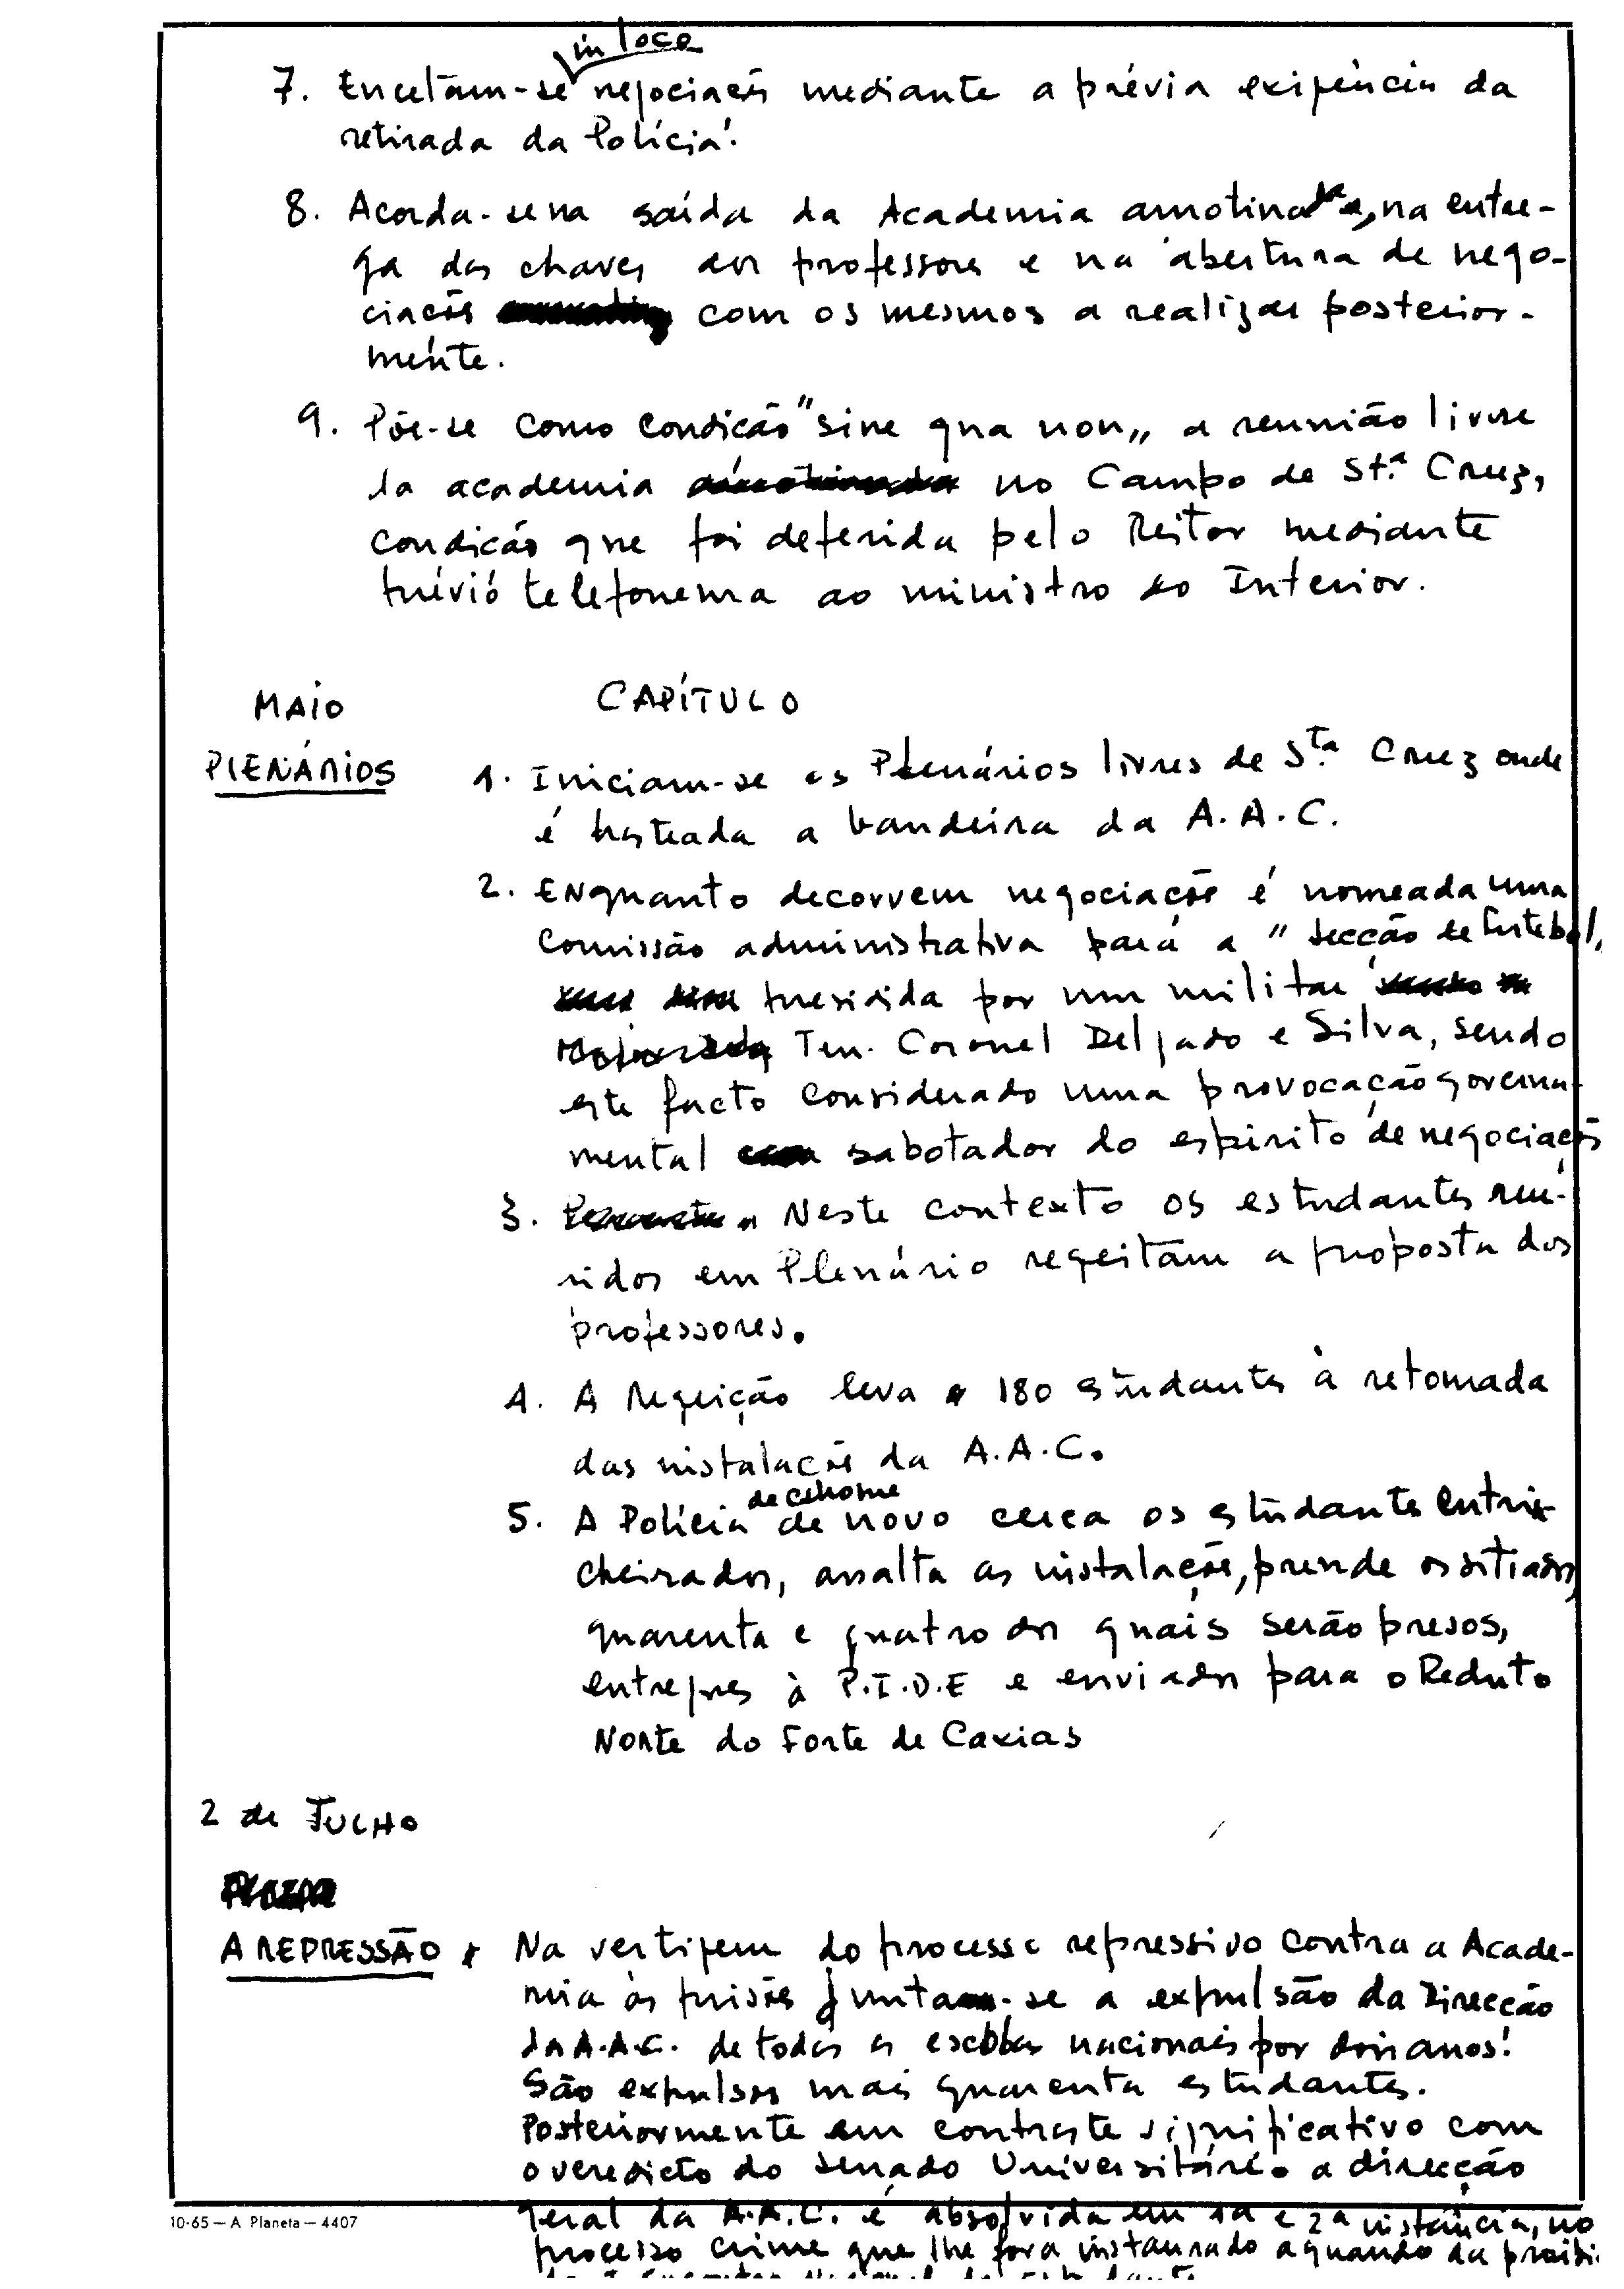 in loco
7. Encetam-se negociações mediante a prévia exigência da
retirada da Polícia.
8. Acorda-se na saída da Academia amotinada, na entre-
ga das chaves aos professores e na abertura de nego-
ciações com os mesmos a realizar posterior-
mente.
9. Põe-se como condição "sine qua non" a reunião livre
da academia no Campo de St.ª Cruz,
condição que foi deferida pelo Reitor mediante
prévio telefonema ao ministro do Interior.
MAIO CAPÍTULO
PLENÁRIOS
1. Iniciam-se os Plenários livres de S.ta Cruz onde
é hasteada a bandeira da A.A.C.
2. Enquanto decorrem negociações é nomeada uma
comissão administrativa para a "secção de futebol,,
presidida por um militar
Ten. Coronel Delgado e Silva, sendo
este facto considerado uma provocação governa-
mental sabotador do espírito de negociações
3. Neste contexto os estudantes reu-
nidos em Plenário regeitam a proposta dos
professores.
4. A regeição leva 180 estudantes à retomada
das instalações da A.A.C.
de choque
5. A Polícia de novo cerca os estudantes entrin-
cheirados, assalta as instalações, prende os sitiados,
quarenta e quatro dos quais serão presos,
entregues à P.I.D.E e enviados para o Reduto
Norte do Forte de Caxias
2 de JULHO
A REPRESSÃO
Na vertigem do processo repressivo contra a Acade-
mia às prisões junta-se a expulsão da Direcção
da A.A.C. de todas as escolas nacionais por dois anos!
São expulsos mais quarenta estudantes.
Posteriormente em contraste significativo com
o veredicto do senado Universitário a direcção
geral da A.A.C. é absolvida em 1ª e 2ª instância, no
processo crime que lhe fora instaurado aquando da proibi-
10-65 — A Planeta — 4407